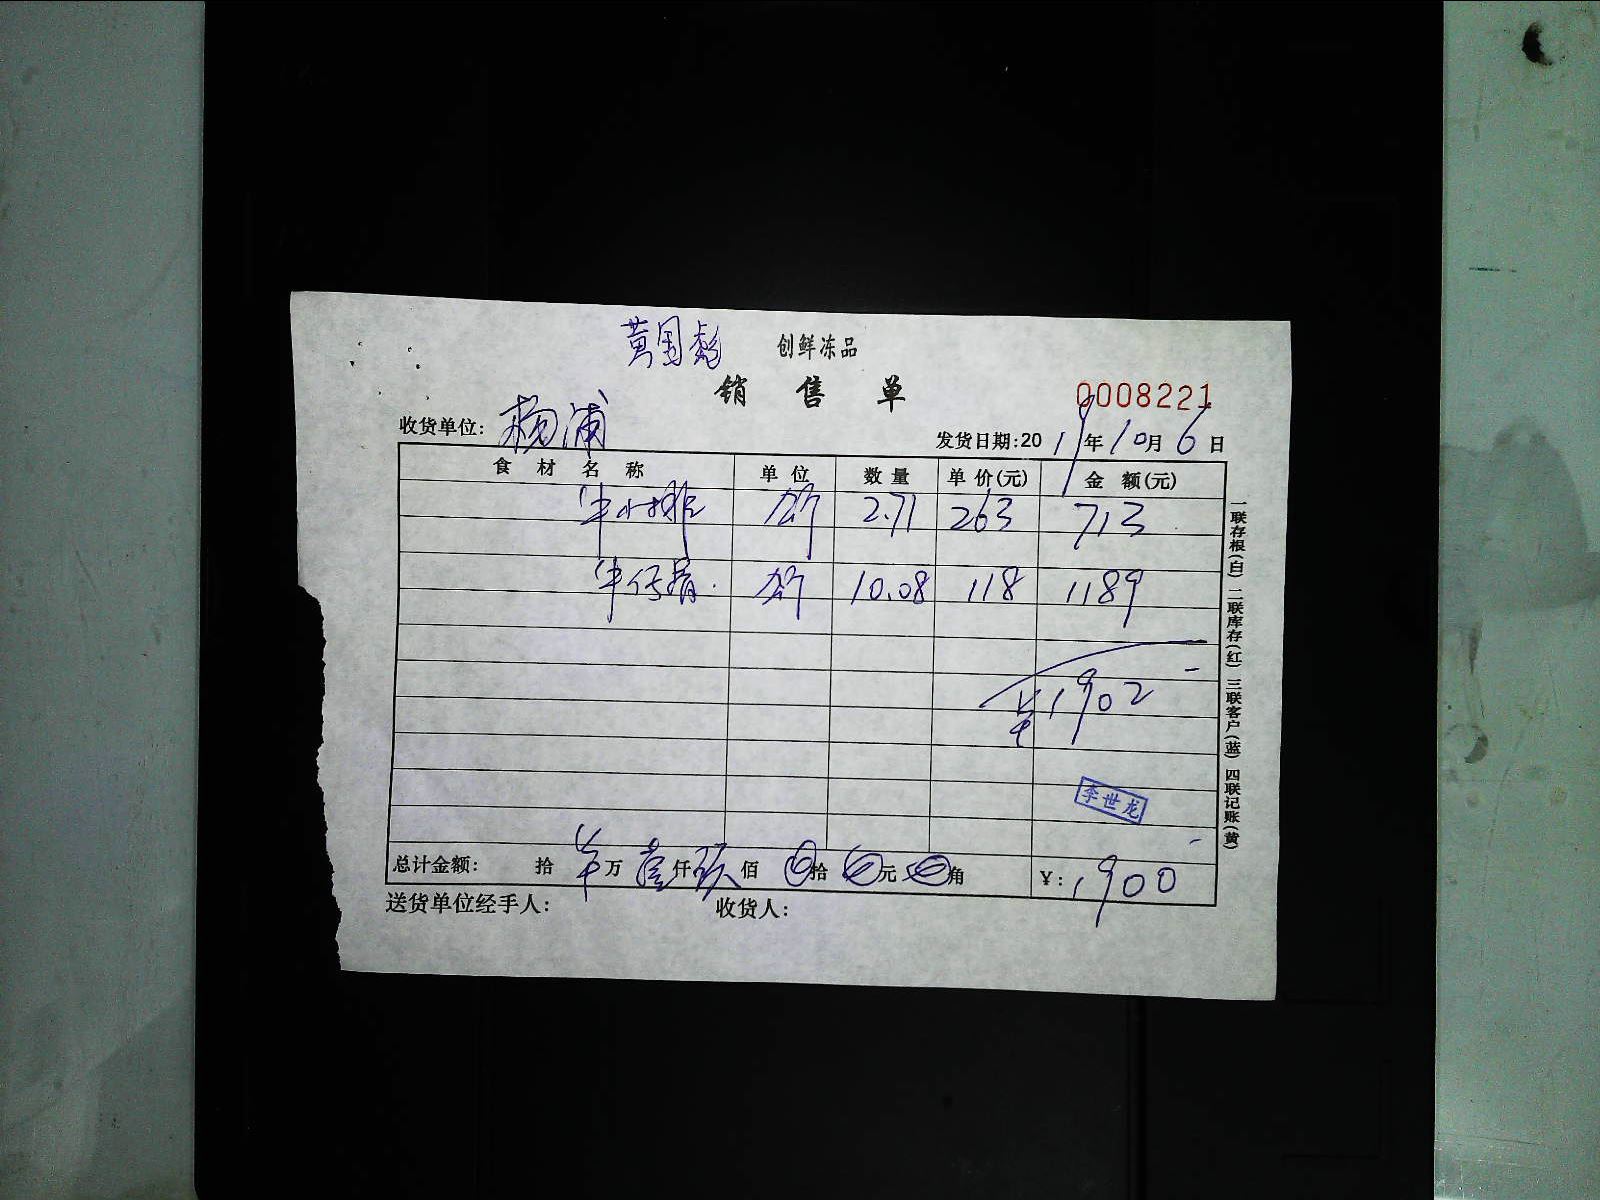 黄国彪 创鲜冻品
销售单 0008221
收货单位: 杨浦 发货日期:2019年10月6日
食材名称 单位 数量 单价(元) 金额(元)
牛小排 斤 2.71 263 713
牛仔骨 斤 10.08 118 1189
¥1902
李世龙
总计金额: 拾 ¥万 壹仟玖佰 0拾0元0角 ¥: 1900
送货单位经手人: 收货人:
一联存根(白) 二联库存(红) 三联客户(蓝) 四联记账(黄)